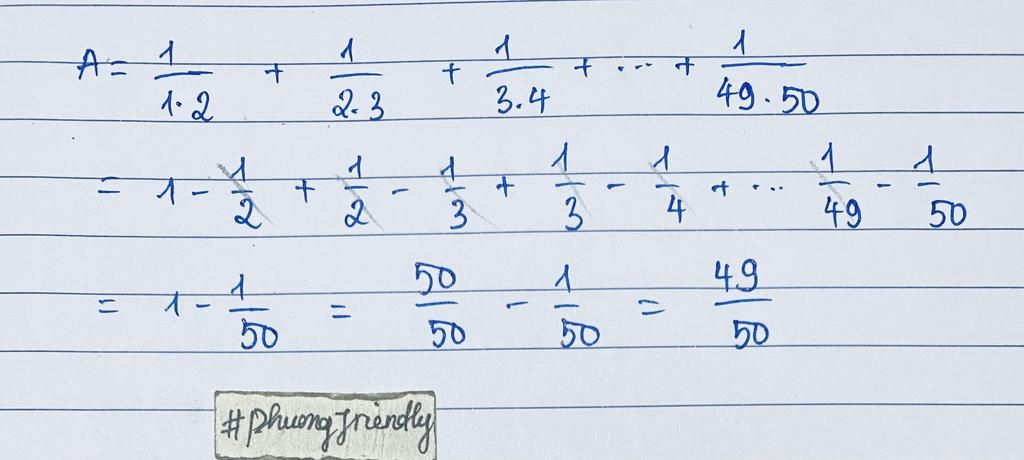 A = 1/1·2 + 1/2·3 + 1/3·4 + ... + 1/49·50
= 1 - 1/2 + 1/2 - 1/3 + 1/3 - 1/4 + ... 1/49 - 1/50
= 1 - 1/50 = 50/50 - 1/50 = 49/50
#phuongfriendly